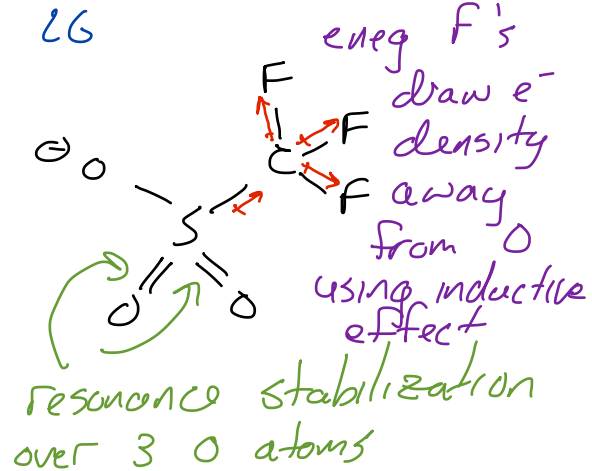 LG
eneg F's
draw e⁻
density
away
from O
using inductive
effect
F
F
C
F
⊖ O
S
O
O
resonance stabilization
over 3 O atoms